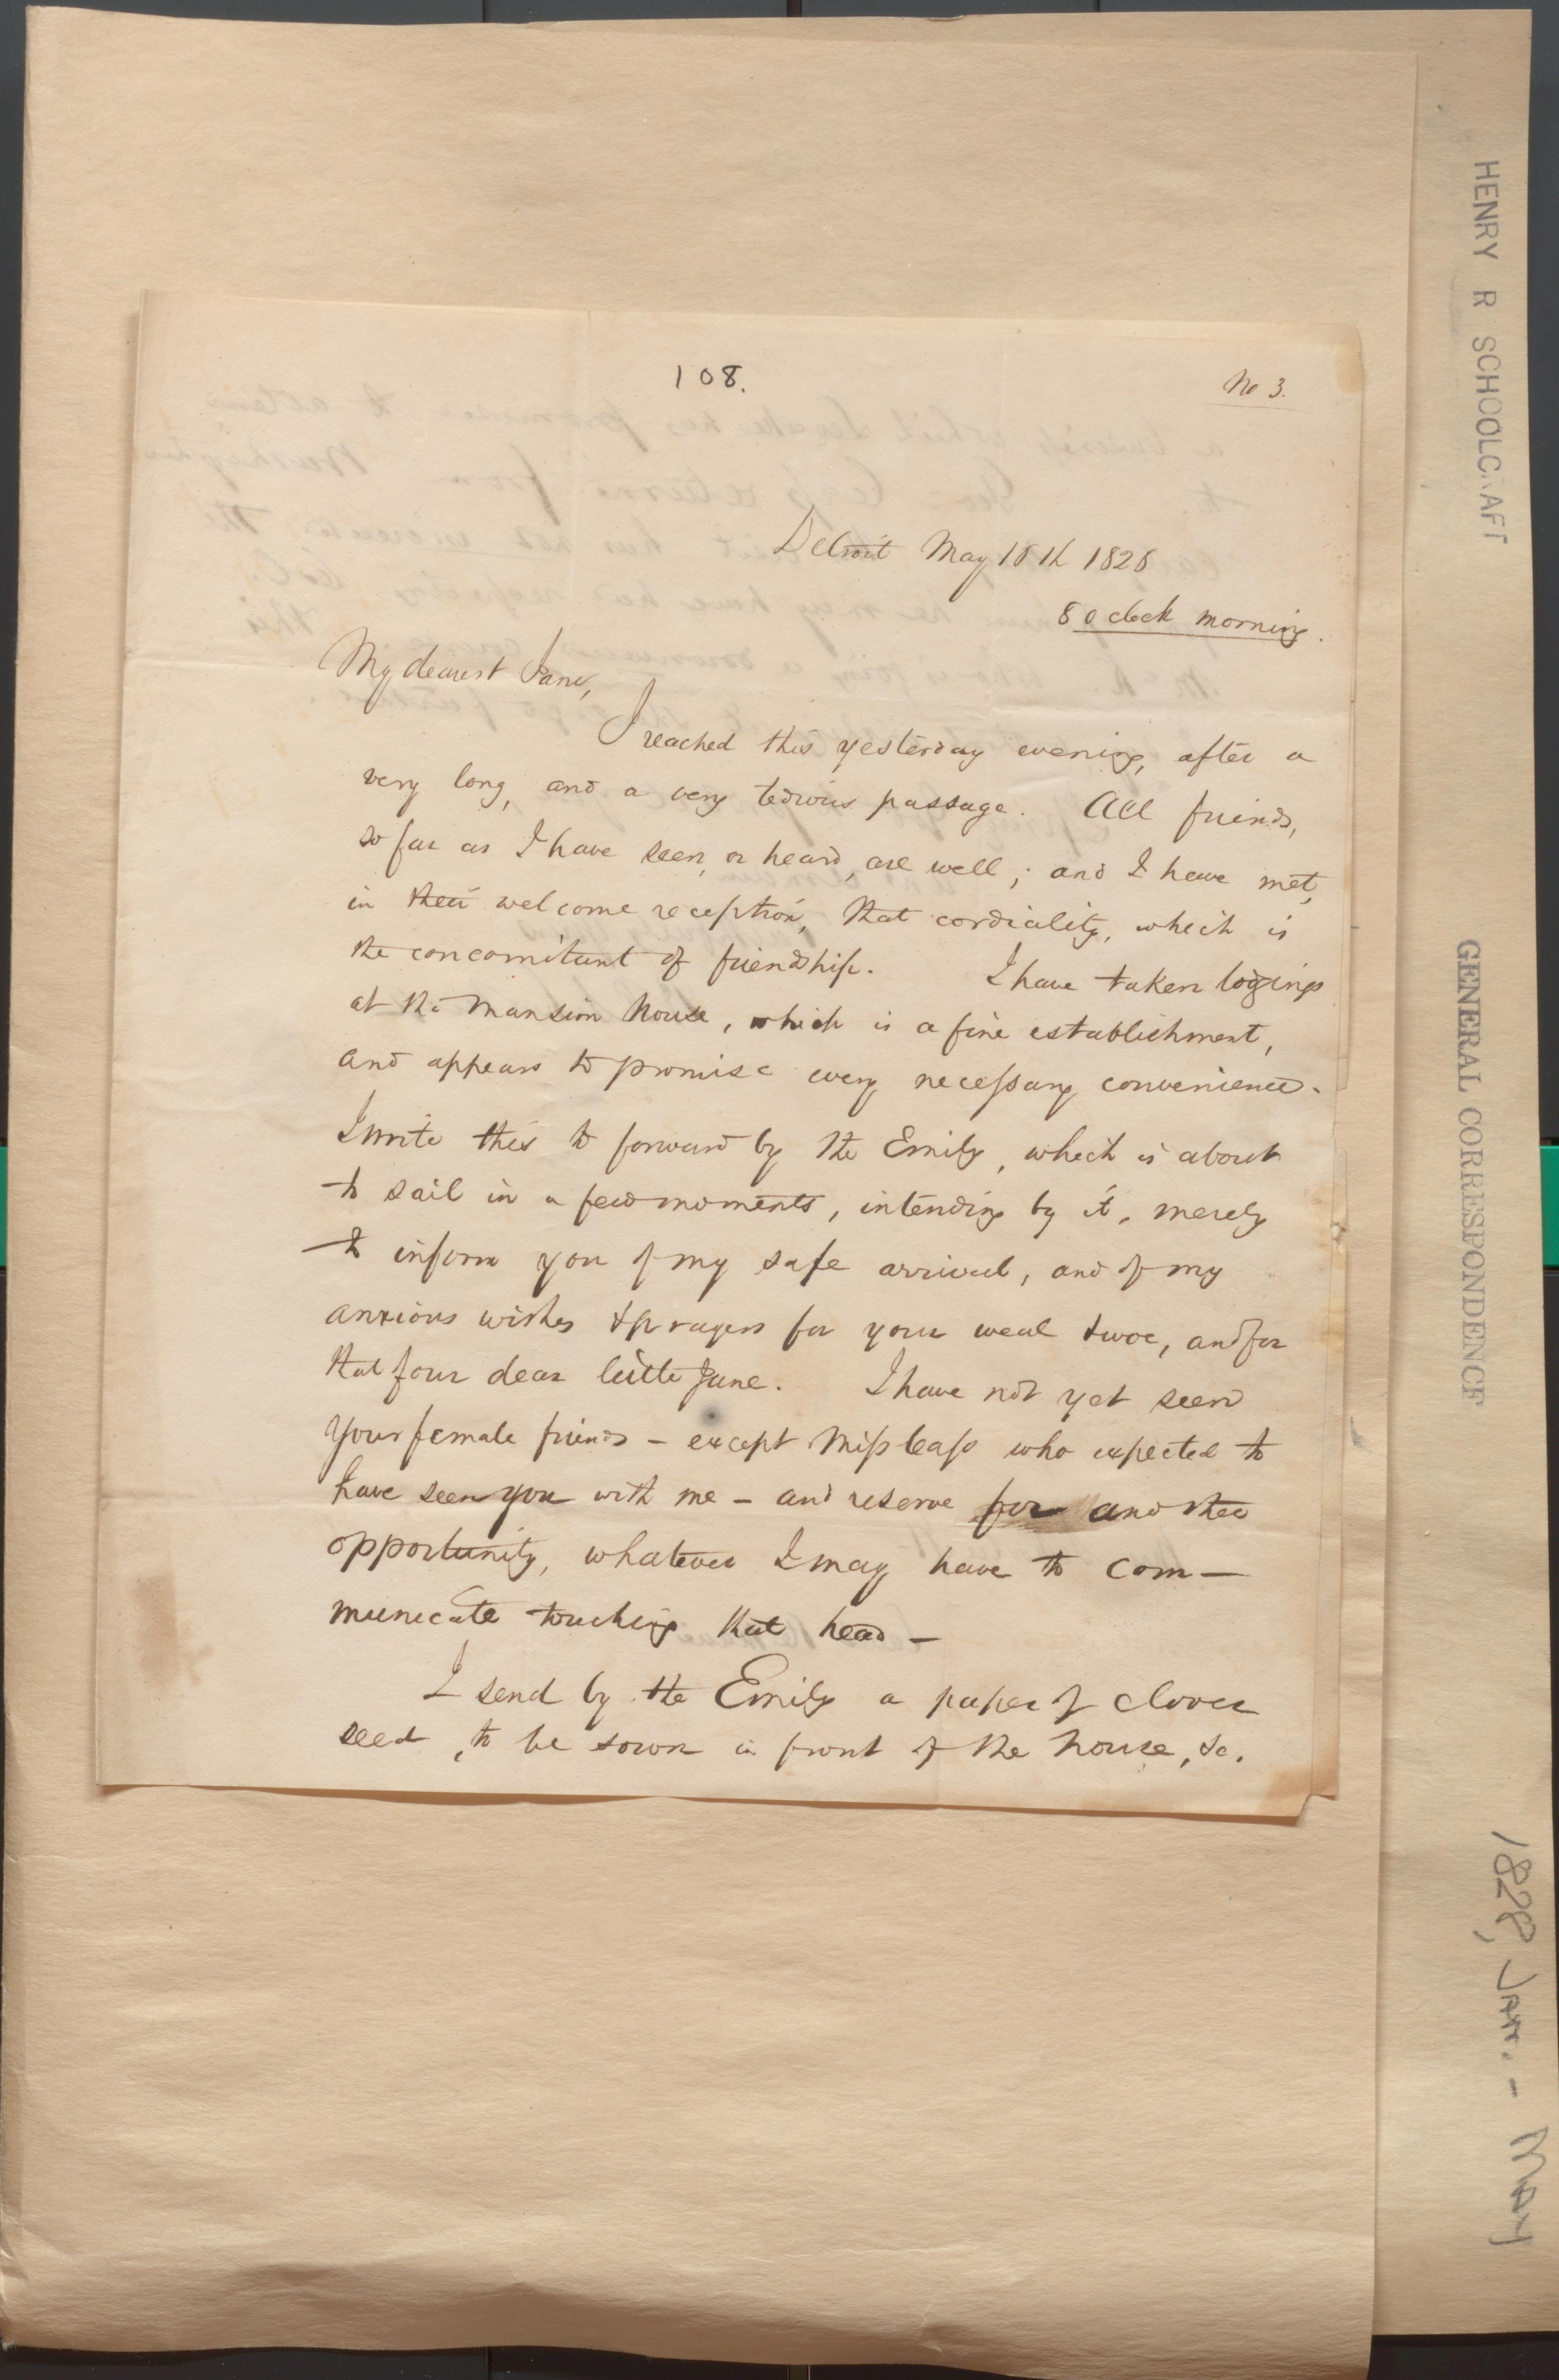 108.
No 3.
Detroit May 18th 1828
8 o clock morning.
My dearest Jane,
I reached this yesterday evening, after a
very long, and a very tedious passage. All friends,
so far as I have seen, or heard, are well; and I have met,
in their welcome reception, that cordiality, which is
the concomitant of friendship. I have taken lodgings
at the Mansion House, which is a fine establishment,
and appears to promise every necessary convenience.
I write this to forward by the Emily, which is about
to sail in a few moments, intending by it, merely
to inform you of my safe arrival, and of my
anxious wishes & prayers for your weal & woe, and for
that of our dear little Jane. I have not yet seen
your female friends – except Miss Cass who expected to
have seen you with me – and reserve for another
opportunity, whatever I may have to com-
municate touching that head –
I send by the Emily a paper of clover
seed, to be sown in front of the house, &c.
HENRY R SCHOOLCRAFT
GENERAL CORRESPONDENCE
1828, Jan. - May